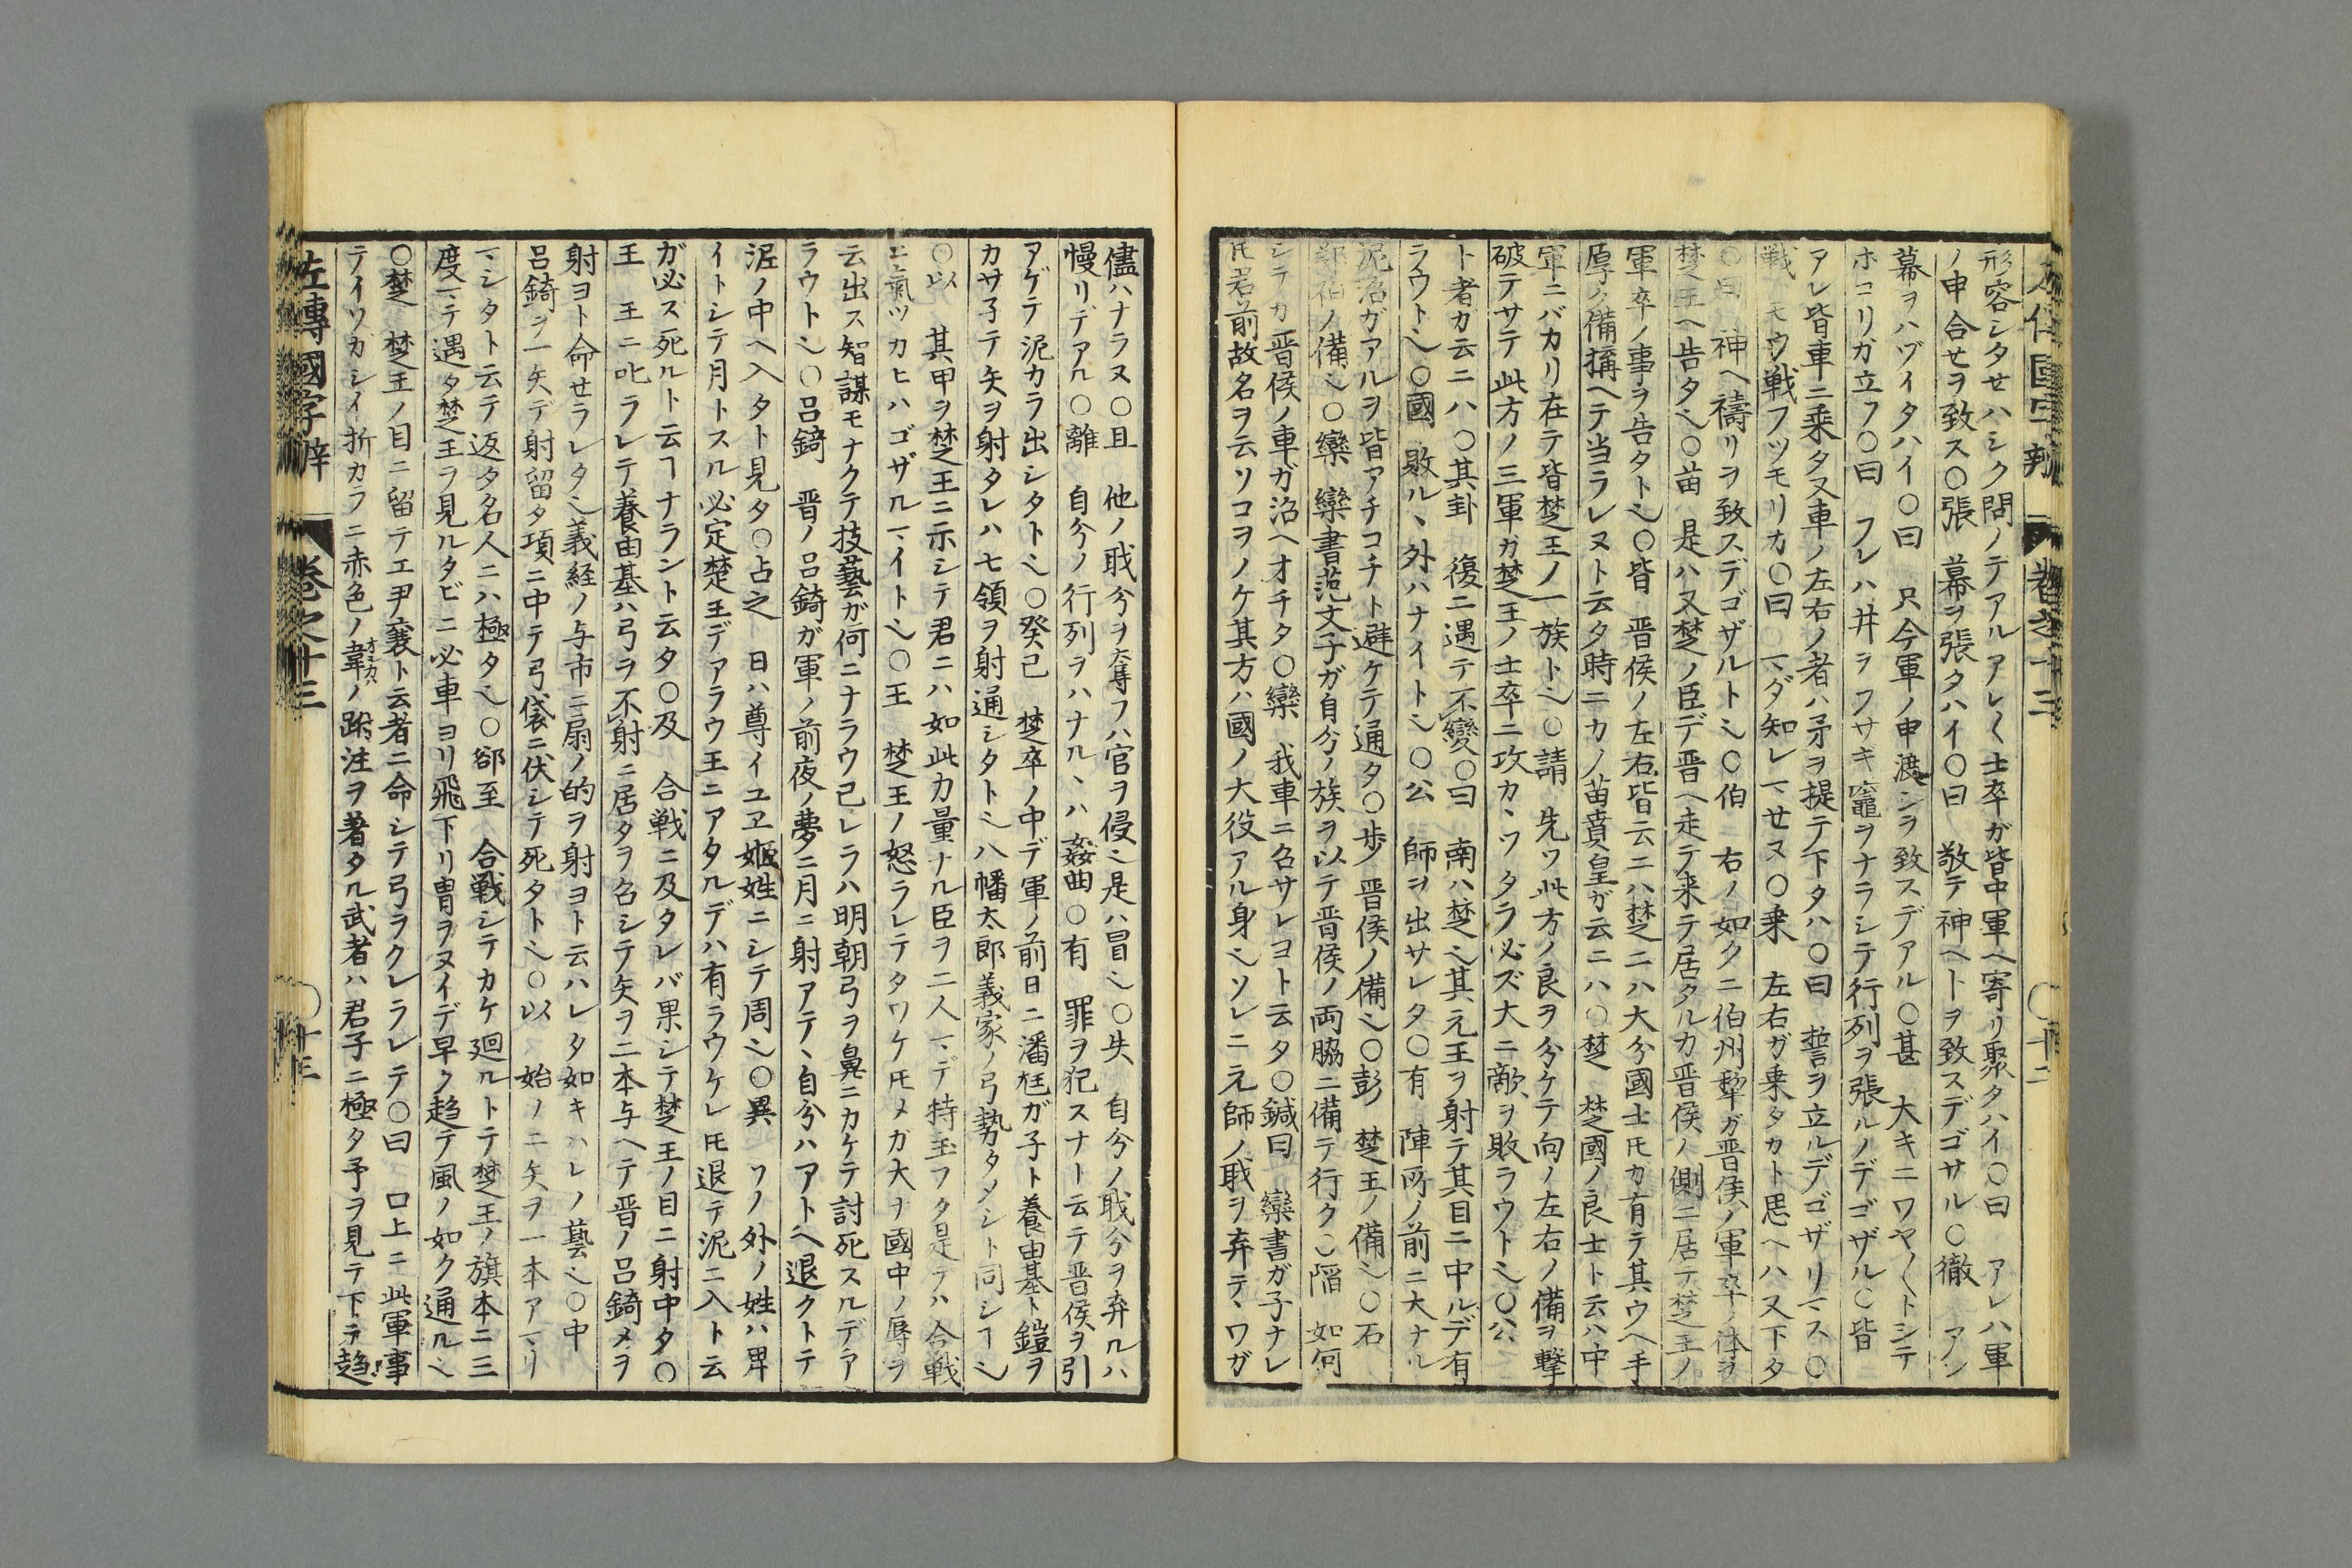 形容シタせハシク閙ノテアルアレ〱士卒ガ皆中軍ヘ寄リ聚タハイ〇曰　アレハ軍
ノ申合セヲ致ス〇張　幕ヲ張タハイ〇曰　敬テ神ヘトヲ致スデゴサル〇徹　アシ
幕ヲハヅイタハイ〇曰　只今軍ノ申渡シヲ致スデアル〇甚　大キニワヤ〱トシテ
ホコリガ立フ〇曰　フレハ井ラフサキ竈ヲナラシテ行列ヲ張ルノデゴザル〇皆
アレ皆車ニ乗タ又車ノ左右ノ者ハ矛ヲ提テ下タハ〇曰　誓ヲ立ルデゴザリマス〇
戦　モウ戦フツモリカ〇曰　マダ知レマせヌ〇乗　左右ガ乗タカト思ヘハ又下タ
〇曰　神ヘ禱リヲ致スデゴザルト也〇伯　右ノ如クニ伯州犂ガ晋侯ノ軍卒ノ体ヲ
楚王ヘ告タ也〇苗　是ハ又楚ノ臣デ晋ヘ走テ来テ居タルカ晋侯ノ側ニ居テ楚王ノ
軍卒ノ事ヲ告タト也〇皆　晋侯ノ左右皆云ニハ楚ニハ大分國士𪜈カ有テ其ウヘ手
厚ク備搆ヘテ当ラレヌト云タ時ニカノ苗賁皇ガ云ニハ〇楚　楚國ノ良士ト云ハ中
軍ニバカリ在テ皆楚王ノ一族ト也〇請　先ワ此方ノ良ヲ分ケテ向ノ左右ノ備ヲ撃
破テサテ此方ノ三軍ガ楚王ノ士卒ニ攻カヽツタラ必ズ大ニ敵ヲ敗ラウト也〇公
ト者ガ云ニハ〇其卦　復ニ遇テ不變〇曰　南ハ楚也其元王ヲ射テ其目ニ中ルデ有
ラウト也〇國　敗ルヽ外ハナイト也〇公　師ヲ出サレタ〇有　陣所ノ前ニ大ナル
泥沼ガアルヲ皆アチコチト避ケテ通タ〇歩　晋侯ノ備也〇彭　楚王ノ備也〇石
鄭伯ノ備也〇欒　欒書范文子ガ自分ノ族ヲ以テ晋侯ノ両脇ニ備テ行ク〇陥　如何
シラカ晋侯ノ車ガ沼ヘオチタ〇欒　我車ニ召サレヨト云タ〇鍼曰　欒書ガ子ナレ
𪜈君前故名ヲ云ソコヲノケ其方ハ國ノ大役アル身也ソレニ元師ノ職ヲ弃テヽワガ
儘ハナラヌ〇且　他ノ職分ヲ奪フハ官ヲ侵ニ是ハ冒也〇失　自分ノ職分ヲ弃ルハ
慢リデアル〇離　自分ノ行列ヲハナルヽハ姦曲〇有　罪ヲ犯スナト云テ晋侯ヲ引
アゲテ泥カラ出シタト也〇癸已　楚卒ノ中デ軍ノ前日ニ潘尫ガ子ト養由基ト鎧ヲ
カサ子テ矢ヲ射タレハ七領ヲ射通シタト也八幡太郎義家ノ弓勢タメシト同シヿ也
〇以　其甲ヲ楚王ニ示シテ君ニハ如此力量ナル臣ヲ二人マデ特玉フタ是テハ合戦
ニ氣ツカヒハゴザルマイト也〇王　楚王ノ怒ラレテタワケ𪜈メガ大ナ國中ノ辱ヲ
云出ス智謀モナクテ技藝ガ何ニナラウ己レラハ明朝弓ヲ鼻ニカケテ討死スルデア
ラウト也〇呂錡　晋ノ呂錡ガ軍ノ前夜ノ夢ニ月ニ射アテヽ自分ハアトヘ退クトテ
泥ノ中ヘ入タト見タ〇占之　日ハ尊イユヱ姫姓ニシテ周也〇異　ワノ外ノ姓ハ畀
イトシテ月トスル必定楚王デアラウ王ニアタルデハ有ラウケレ𪜈退テ泥ニ入ト云
ガ必ス死ルト云ヿナラント云タ〇及　合戦ニ及タレバ果シテ楚王ノ目ニ射中タ〇
王　王ニ叱ラレテ養由基ハ弓ヲ不射ニ居タヲ召シテ矢ヲ二本与ヘテ晋ノ呂錡メヲ
射ヨト命せラレタ也義経ノ与市ニ扇ノ的ヲ射ヨト云ハレタ如キハレノ藝也〇中
呂錡ヲ一矢デ射留タ項ニ中テ弓袋ニ伏シテ死タト也〇以　始ノ二矢ヲ一本アマリ
マシタト云テ返タ名人ニハ極タ也〇郤至　合戦シテカケ廻ルトテ楚王ノ旗本ニ三
度マテ遇タ楚王ヲ見ルタビニ必車ヨリ飛下リ冑ヲヌイデ早ク趋テ風ノ如ク通ル也
〇楚　楚王ノ目ニ留テエ尹襄ト云者ニ命シテ弓ヲクレラレテ〇曰　口上ニ此軍事
テイソガシイ折カラニ赤色ノ韋ノ跗注ヲ著タル武者ハ君子ニ極タ予ヲ見テ下テ趋
左傳國字辨　巻之十三　〇十三